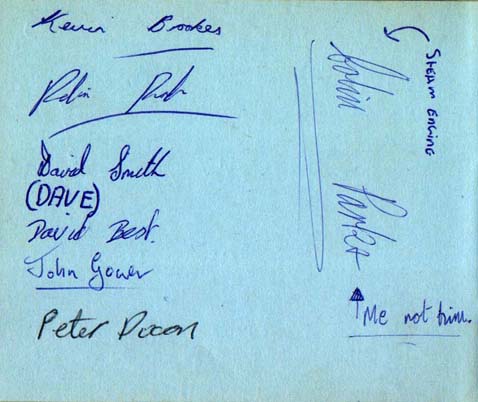 Kevin Brookes
Robin
David Smith
(DAVE)
David Best.
John Gower
Peter Dixon
STEAM ENGINE
Robin Parker
Me not him.